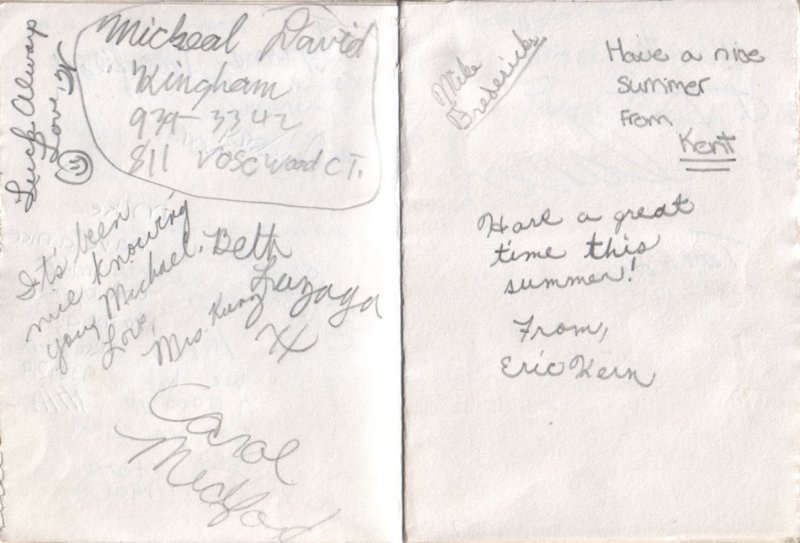 Luck Always
Love, 
Mickeal David
Kingham
939-3342
811 rosewood CT.
It's been
nice knowing
you, Michael.
Love,
Mrs. Kunz
Beth
Luzaga
Carol
Medford
Mike
Bredesick
Have a nice
summer
From
Kent
Have a great
time this
summer!
From,
Eric Kern